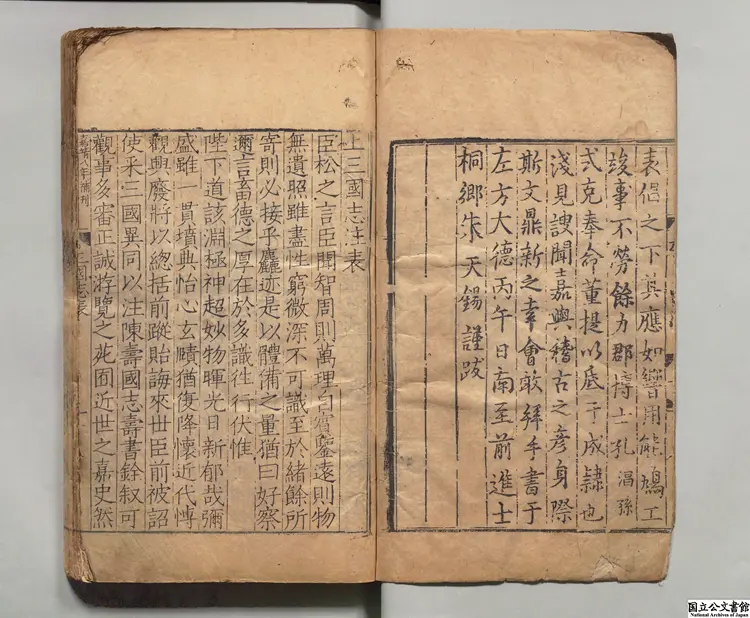 表侶之下其應如響用能鳩工
竣事不勞餘力郡博士孔淐孫
式克奉命董提以底于成隷也
淺見謏聞嘉與稽古之彦身際
斯文鼎新之幸會敢拜手書于
左方大德丙午日南至前進士
桐鄉朱天錫謹跋
上三國志注表
臣松之言臣聞智周則萬理自賓鑒遠則物
無遺照雖盡性窮微深不可識至於緒餘所
寄則必接乎麤迹是以體備之量猶曰好察
邇言畜德之厚在於多識往行伏惟
陛下道該淵極神超妙物暉光日新郁哉彌
盛雖一貫墳典怡心玄賾猶復降懷近代博
觀興廢將以總括前蹤貽誨來世臣前被詔
使采三國異同以注陳壽國志壽書銓叙可
觀事多審正誠游覽之苑囿近世之嘉史然
國志表
国立公文書館
National Archives of Japan